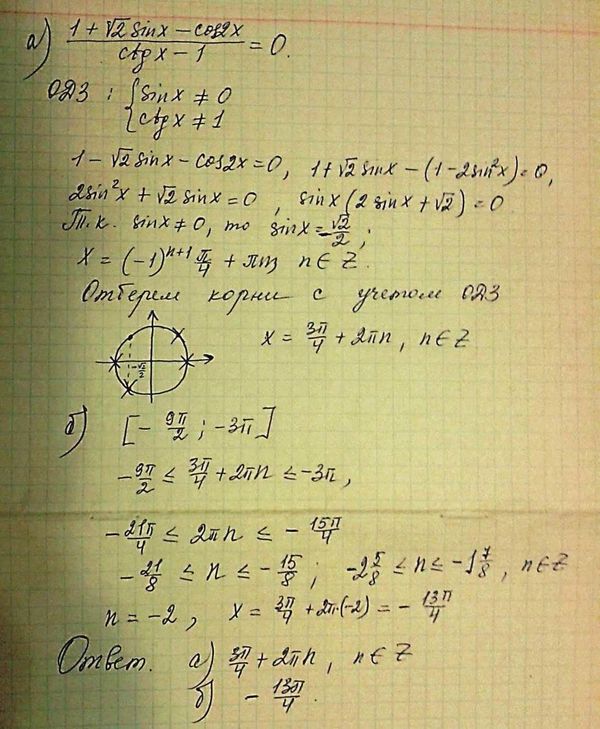 а) (1 + √2 sinx − cos2x)/(ctg x − 1) = 0.
ОДЗ : { sinx ≠ 0
ctgx ≠ 1
1 − √2 sinx − cos2x = 0, 1 + √2 sinx − (1 − 2sin²x) = 0,
2sin²x + √2 sinx = 0 , sinx(2 sinx + √2) = 0
Т.к. sinx ≠ 0, то sinx = −√2/2 ;
X = (−1)ⁿ⁺¹ π/4 + πn n ∈ Z.
Отберем корни с учетом ОДЗ
−√2/2 x = 3π/4 + 2πn, n ∈ Z
б) [− 9π/2 ; −3π]
−9π/2 ≤ 3π/4 + 2πn ≤ −3π,
−21π/4 ≤ 2πn ≤ − 15π/4
−21/8 ≤ n ≤ − 15/8 ; −2 5/8 ≤ n ≤ −1 7/8 , n ∈ Z
n = −2 , x = 3π/4 + 2π·(−2) = − 13π/4
Ответ. а) 3π/4 + 2πn , n ∈ Z
б) − 13π/4 .